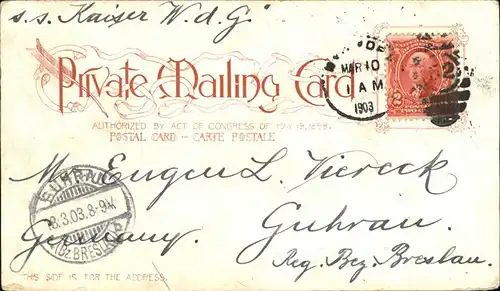 s.s. "Kaiser W. d. G."
MAR 10
1 AM
1903
Private Mailing Card
AUTHORIZED BY ACT OF CONGRESS OF MAY 19, 1898.
POSTAL CARD – CARTE POSTALE
Mr. Eugen L. Viereck
GUHRAU
8.3.03.8-9V.
(BZ. BRESLAU)
Guhrau
Germany.
Reg. Bez. Breslau.
THIS SIDE IS FOR THE ADDRESS.